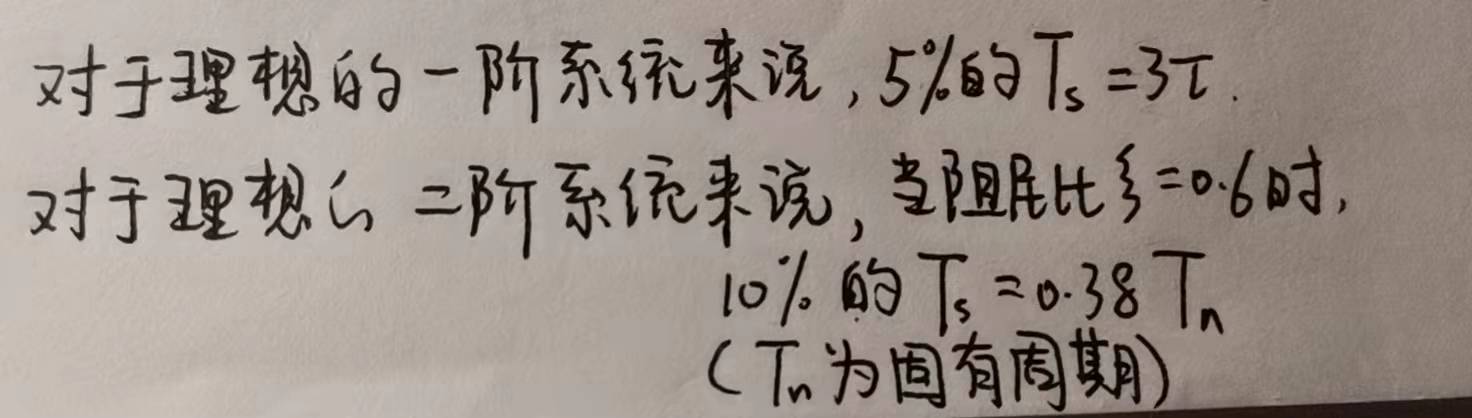 对于理想的一阶系统来说,5%的Ts=3τ.
对于理想的二阶系统来说,当阻尼比ξ=0.6时,
10%的Ts=0.38Tn
(Tn为固有周期)